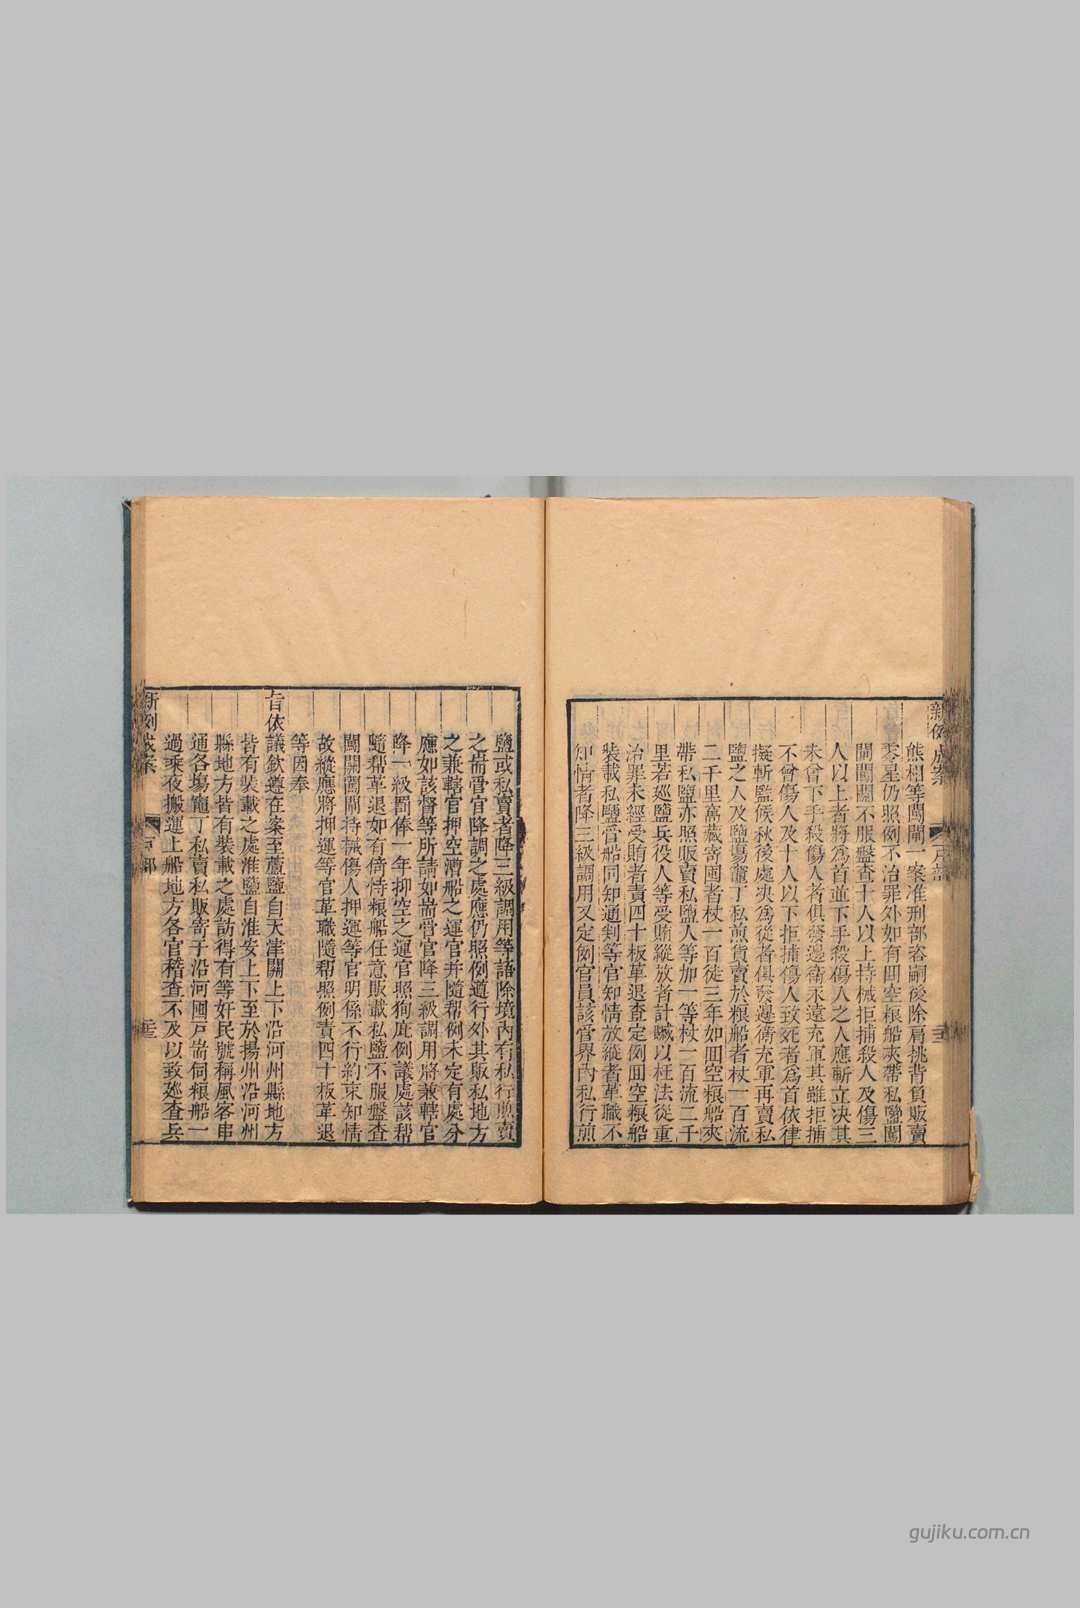 新例成案
戶部
熊相等闖閘一案准刑部咨嗣後除肩挑背負販賣
零星仍照例不治罪外如有囬空粮船夾帶私鹽闖
閘闖關不服盤查十人以上持械拒捕殺人及傷三
人以上者將爲首並下手殺傷人之人應斬立决其
未曾下手殺傷人者俱發邊衛永遠充軍其雖拒捕
不曾傷人及十人以下拒捕傷人致死者爲首依律
擬斬監候秋後處决爲從者俱發邊衛充軍再賣私
鹽之人及鹽場竈丁私煎貨賣於粮船者杖一百流
二千里窩藏寄囤者杖一百徒三年如囬空粮船夾
帶私鹽亦照販賣私鹽人等加一等杖一百流二千
里若廵鹽兵役人等受賄縱放者計贓以枉法從重
治罪未經受賄者責四十板革退查定例囬空粮船
裝載私鹽管船同知通判等官知情放縱者革職不
知情者降三級調用又定例官員該管界內私行煎
鹽或私賣者降三級調用等語除境內有私行煎賣
之耑管官降調之處應仍照例遵行外其販私地方
之兼轄官押空漕船之運官并隨幫例未定有處分
應如該督等所請如耑管官降三級調用將兼轄官
降一級罰俸一年押空之運官照徇庇例議處該幫
隨幫革退如有倚恃粮船任意販載私鹽不服盤查
闖關闖閘持械傷人押運等官明係不行約束知情
故縱應將押運等官革職隨幫照例責四十板革退
等因奉
旨依議欽遵在案至蘆鹽自天津關上下沿河州縣地方
皆有裝載之處淮鹽自淮安上下至於揚州沿河州
縣地方皆有裝載之處訪得有等奸民號稱風客串
通各場竈丁私賣私販寄于沿河囤戸耑伺粮船一
過乘夜搬運上船地方各官稽查不及以致廵查兵
新例成案
戶部